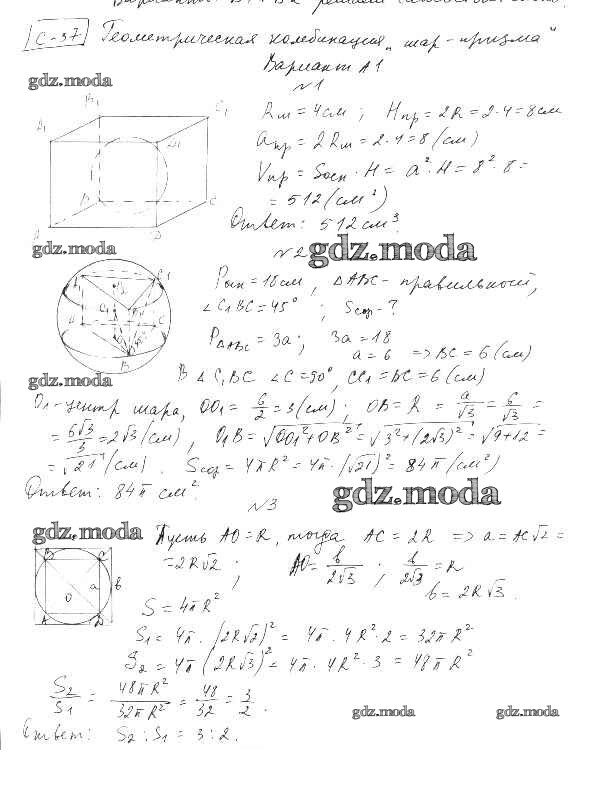 С-37 Геометрическая комбинация „шар-призма"
Вариант А1
gdz.moda
№1
Rш = 4см ; Hпр = 2R = 2·4 = 8см
aпр = 2Rш = 2·4 = 8 (см)
Vпр = Sосн · H = a²·H = 8²·8 =
= 512 (см³)
Ответ: 512 см³.
A1 B1 C1 D1 A B C
gdz.moda
№2 gdz.moda
Pосн = 18см, △ABC - правильный,
∠C1BC = 45° ; Sсф - ?
P△ABC = 3a ; 3a = 18
a = 6 => BC = 6 (см)
gdz.moda
В △C1BC ∠C = 90°, CC1 = BC = 6 (см)
O1 - центр шара, OO1 = 6/2 = 3 (см) ; OB = R = a/√3 = 6/√3 =
= 6√3/3 = 2√3 (см) , O1B = √OO1² + OB² = √3² + (2√3)² = √9+12 =
= √21 (см) . Sсф = 4πR² = 4π·(√21)² = 84π (см²)
Ответ: 84π см².
gdz.moda
№3
gdz.moda
Пусть AO = R, тогда AC = 2R => a = AC√2 =
= 2R√2 ; AO = b/2√3 ; b/2√3 = R
b = 2R√3 .
B C a b O A D
S = 4πR²
S1 = 4π·(2R√2)² = 4π·4R²·2 = 32πR²
S2 = 4π(2R√3)² = 4π·4R²·3 = 48πR²
S2/S1 = 48πR²/32πR² = 48/32 = 3/2 .
gdz.moda gdz.moda
Ответ: S2 : S1 = 3 : 2 .